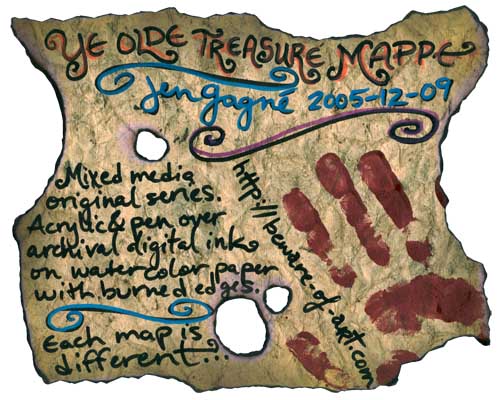 YE OLDE TREASURE MAPPE
jen gagné 2005-12-09
Mixed media
original series.
Acrylic & pen over
archival digital ink
on watercolor paper
with burned edges.
Each map is
different...
http://beware-of-art.com